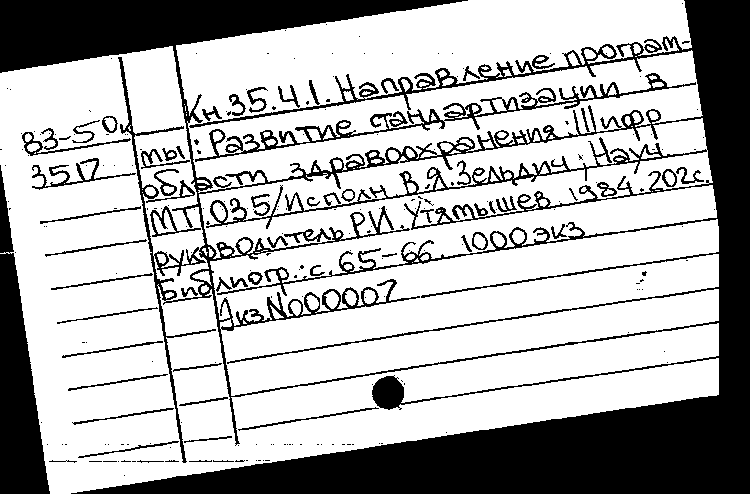 83-50к
3517
Кн.35.4.1. Направление програм-
мы: Развитие стандартизации в
области здравоохранения: Шифр
МТ.035/Исполн В.Я.Зельдич; Науч
руководитель Р.И. Утямышев. 1984. 202с.
Библиогр.: с. 65-66. 1000 экз
Экз.N000007